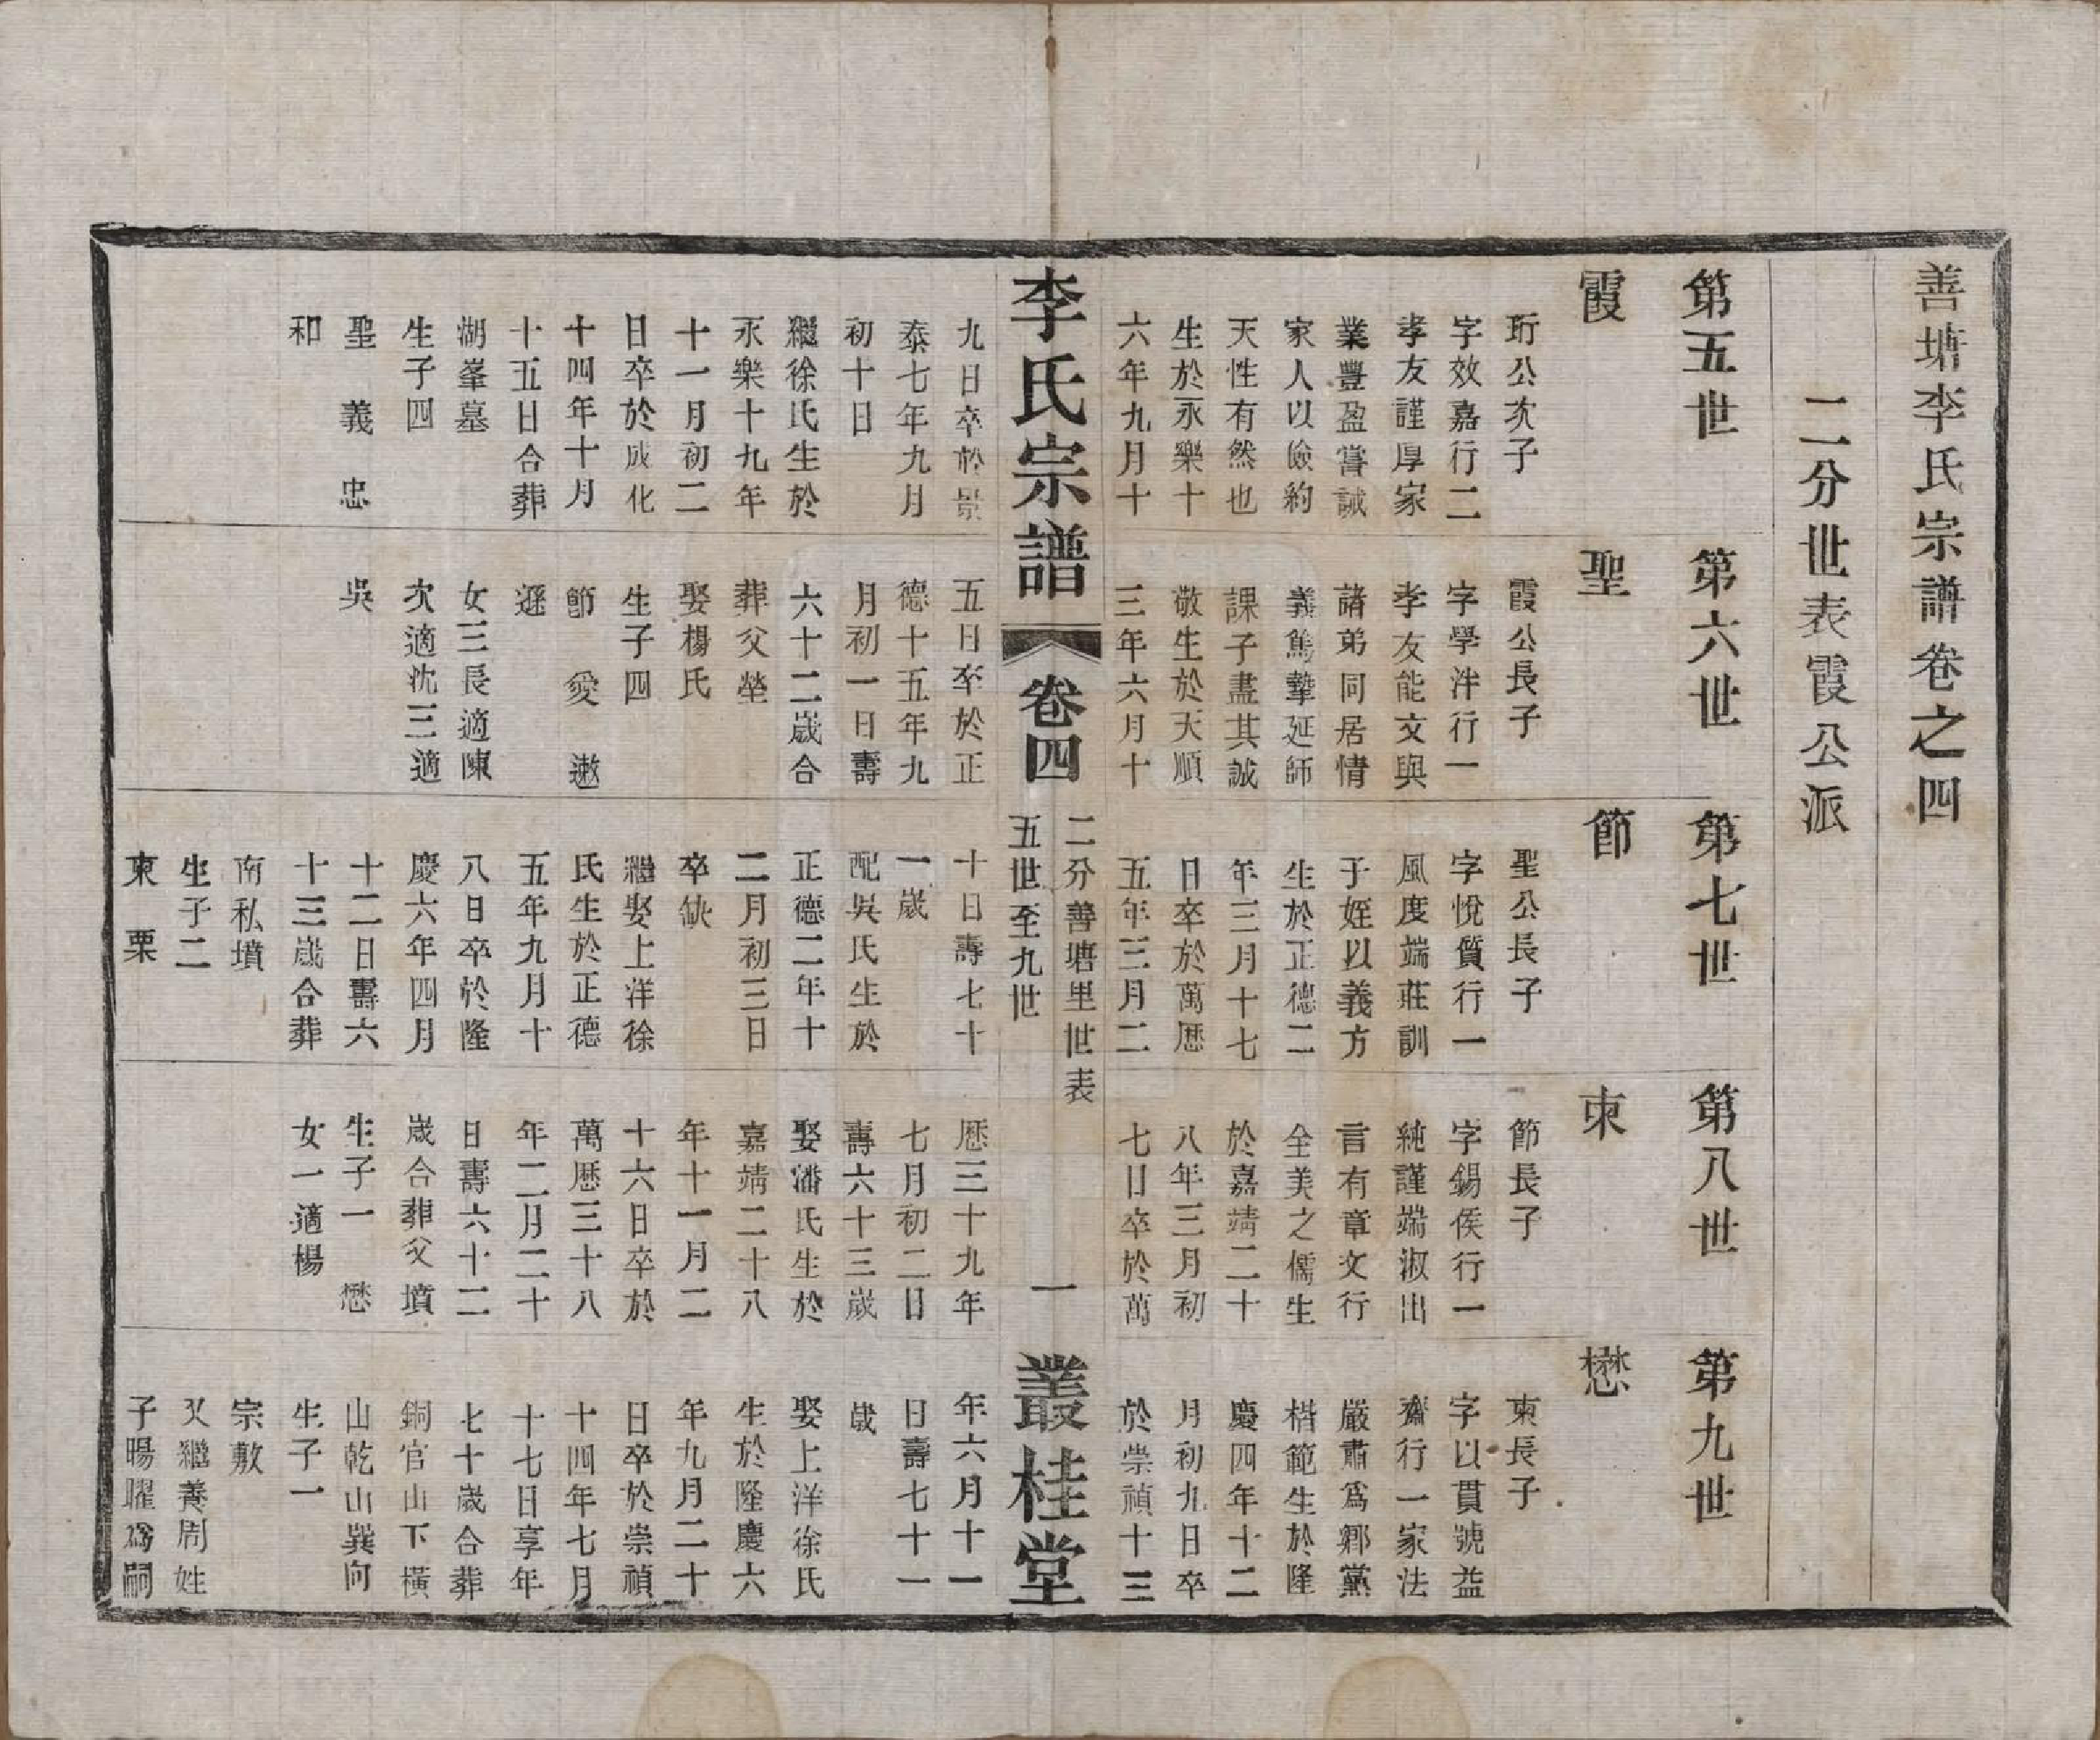 善塘李氏宗譜卷之四
二分世表霞公派
第五世
霞
珩公次子
字效嘉行二
孝友謹厚家
業豐盈嘗誡
家人以儉約
天性有然也
生於永樂十
六年九月十
九日卒於景
泰七年九月
初十日
繼徐氏生於
永樂十九年
十一月初二
日卒於成化
十四年十月
十五日合葬
湖峯墓
生子四
聖 義 忠
和
第六世
聖
霞公長子
字學泮行一
孝友能文與
諸弟同居情
義篤摯延師
課子盡其誠
敬生於天順
三年六月十
五日卒於正
德十五年九
月初一日壽
六十二歲合
葬父塋
娶楊氏
生子四
節 愛 遨
遜
女三長適陳
次適沈三適
吳
第七世
節
聖公長子
字悅質行一
風度端莊訓
子姪以義方
生於正德二
年三月十七
日卒於萬厯
五年三月二
十日壽七十
一歲
配吳氏生於
正德二年十
二月初三日
卒缺
繼娶上洋徐
氏生於正德
五年九月十
八日卒於隆
慶六年四月
十二日壽六
十三歲合葬
南私墳
生子二
東 栗
第八世
東
節長子
字錫侯行一
純謹端淑出
言有章文行
全美之儒生
於嘉靖二十
八年三月初
七日卒於萬
厯三十九年
七月初二日
壽六十三歲
娶潘氏生於
嘉靖二十八
年十一月二
十六日卒於
萬厯三十八
年二月二十
日壽六十二
歲合葬父墳
生子一 懋
女一適楊
第九世
懋
東長子
字以貫號益
齋行一家法
嚴肅爲鄉黨
楷範生於隆
慶四年十二
月初九日卒
於崇禎十三
年六月十一
日壽七十一
歲
娶上洋徐氏
生於隆慶六
年九月二十
日卒於崇禎
十四年七月
十七日享年
七十歲合葬
銅官山下橫
山乾山巽向
生子一
宗敷
又繼養周姓
子暘曜爲嗣
李氏宗譜
卷四
二分善塘里世表
五世至九世
一
叢桂堂